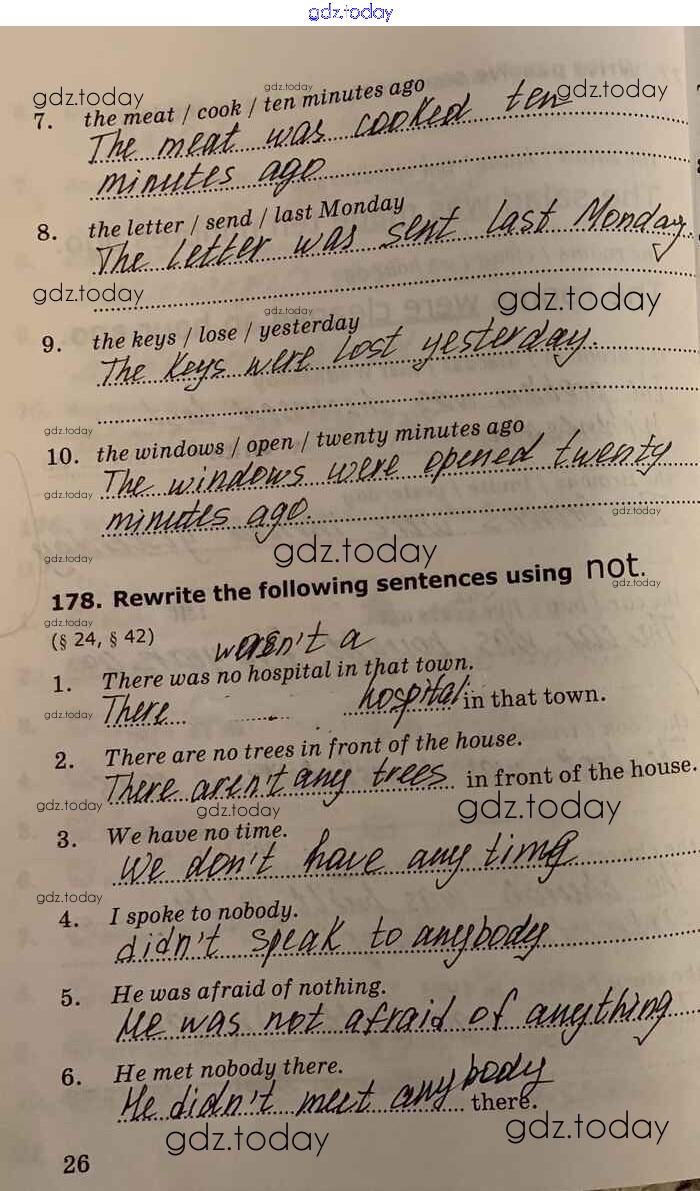 gdz.today
gdz.today gdz.today gdz.today
7. the meat / cook / ten minutes ago
The meat was cooked ten
minutes ago
8. the letter / send / last Monday
The letter was sent last Monday
gdz.today gdz.today gdz.today
9. the keys / lose / yesterday
The keys were lost yesterday.
gdz.today
10. the windows / open / twenty minutes ago
The windows were opened twenty
gdz.today gdz.today
minutes ago.
gdz.today gdz.today
178. Rewrite the following sentences using not.
gdz.today gdz.today
(§ 24, § 42) wasn't a
1. There was no hospital in that town.
There hospital in that town.
gdz.today
2. There are no trees in front of the house.
There aren't any trees in front of the house.
gdz.today gdz.today gdz.today
3. We have no time.
We don't have any time
gdz.today
4. I spoke to nobody.
didn't speak to anybody
5. He was afraid of nothing.
He was not afraid of anything
6. He met nobody there.
He didn't meet anybody there.
gdz.today gdz.today
26